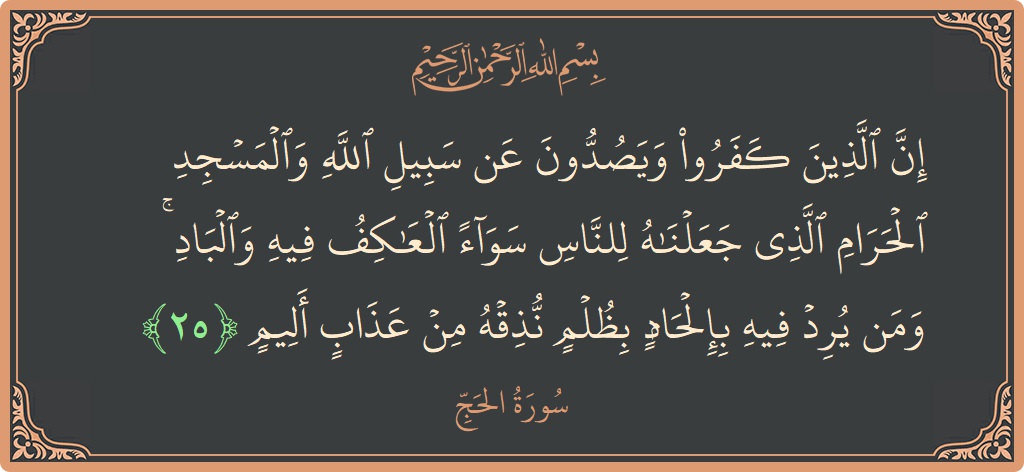 بِسْمِ اللَّهِ الرَّحْمَٰنِ الرَّحِيمِ
إِنَّ ٱلَّذِينَ كَفَرُوا۟ وَيَصُدُّونَ عَن سَبِيلِ ٱللَّهِ وَٱلْمَسْجِدِ
ٱلْحَرَامِ ٱلَّذِى جَعَلْنَـٰهُ لِلنَّاسِ سَوَآءً ٱلْعَـٰكِفُ فِيهِ وَٱلْبَادِ ۚ
وَمَن يُرِدْ فِيهِ بِإِلْحَادٍۭ بِظُلْمٍ نُّذِقْهُ مِنْ عَذَابٍ أَلِيمٍ ﴿٢٥﴾
سُورَةُ الحَجِّ